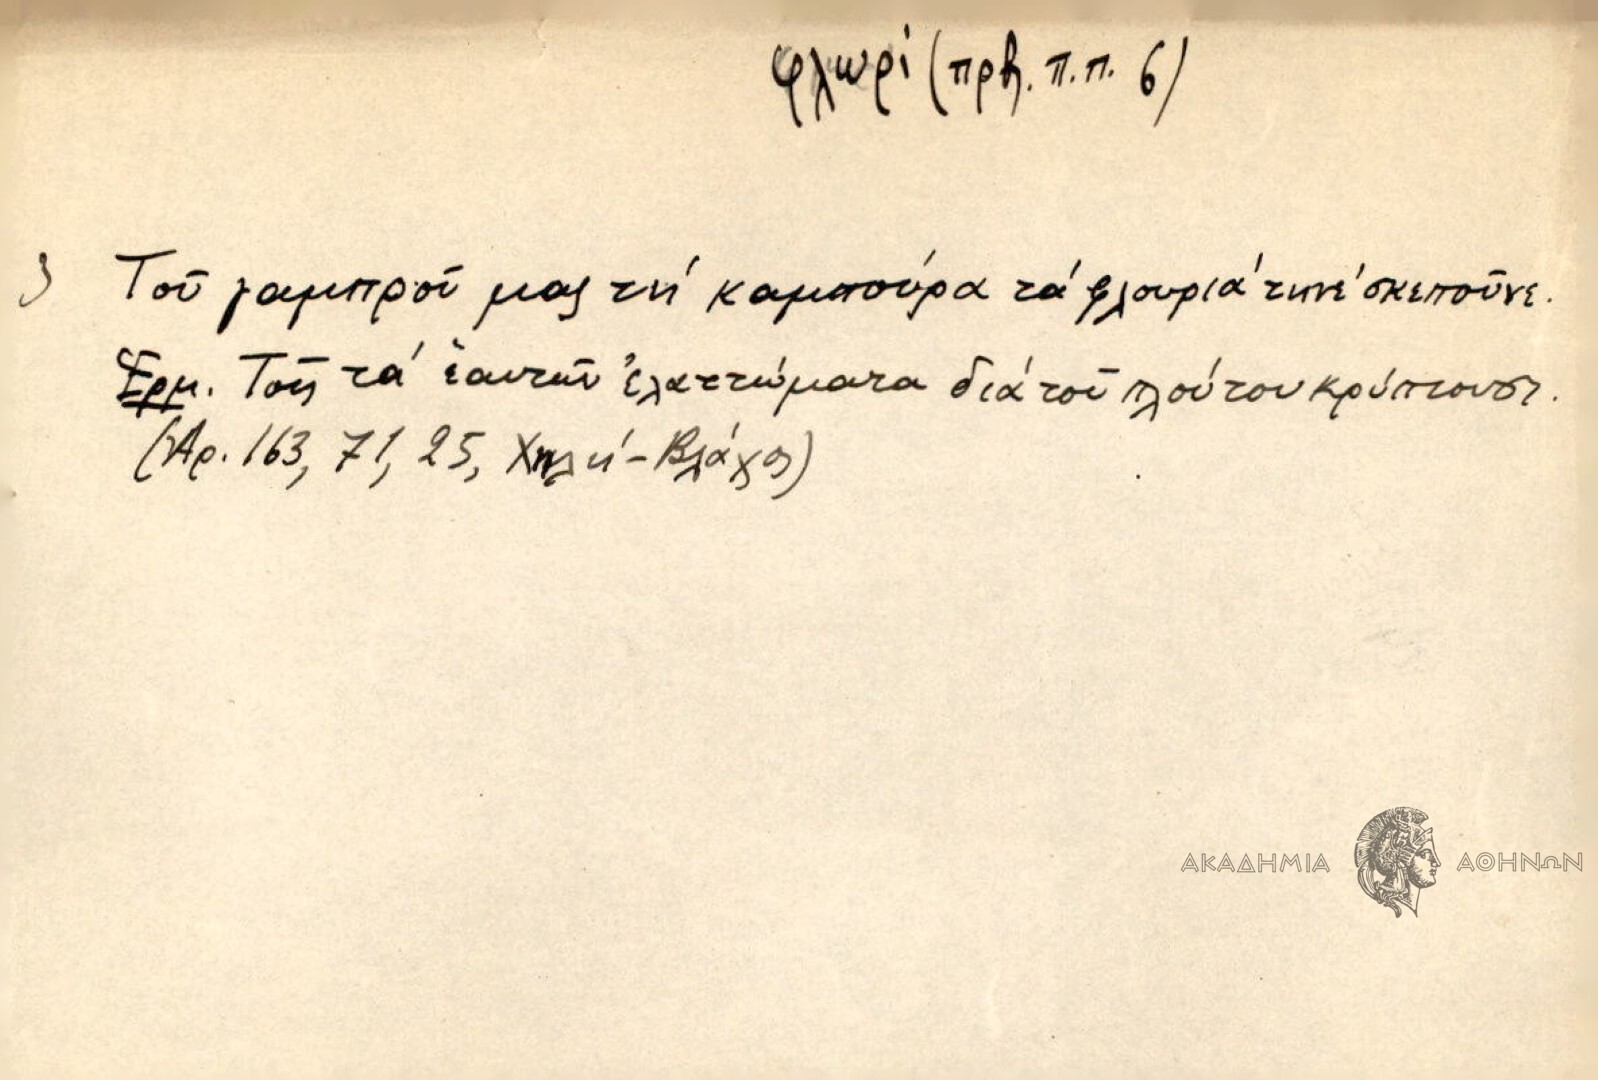 φλωρί (πρβ. π.π. 6)
Τοῦ γαμπροῦ μας τή καμπούρα τά φλουριά τηνέ σκεποῦνε.
Ἑρμ. Τοῖς τά ἑαυτῶν ἐλαττώματα διά τοῦ πλούτου κρύπτουσι.
(Ἀρ. 163, 71, 25, Χηλή - Βλάχος)
ΑΚΑΔΗΜΙΑ ΑΘΗΝΩΝ